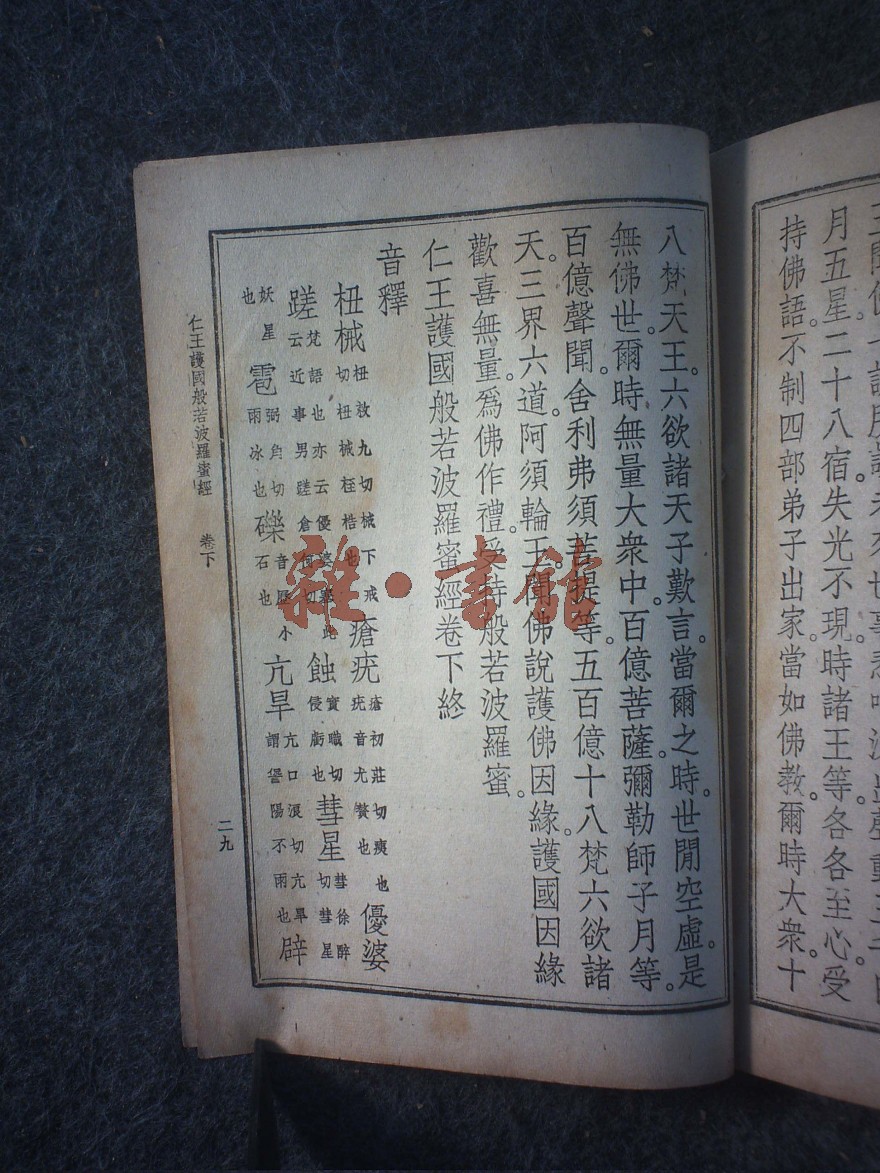 月五星。二十八宿失光不現。時諸王等。各各至心受
持佛語。不制四部弟子出家。當如佛教。爾時大衆。十
八梵天王。六欲諸天子歎言。當爾之時。世閒空虛。是
無佛世。爾時無量大衆中。百億菩薩。彌勒師子月等。
百億聲聞。舍利弗須菩提等。五百億十八梵六欲諸
天。三界六道。阿須輪王。聞佛說護佛因緣。護國因緣
歡喜無量。爲佛作禮。受持般若波羅蜜。
仁王護國般若波羅蜜經卷下終
音釋
杻械杻敕九切械下戒切杻械桎梏也瘡疣瘡初莊切痍也疣音尤贅也優婆
蹉梵語也亦云優婆塞此云近事男蹉倉何切蝕實職切侵虧也彗星彗徐醉切彗星
妖星也雹弼角切雨冰也礫音歷小石也亢旱亢口浪切亢旱謂愆陽不雨也辟
仁王護國般若波羅蜜經 卷下 二九
雜·書館